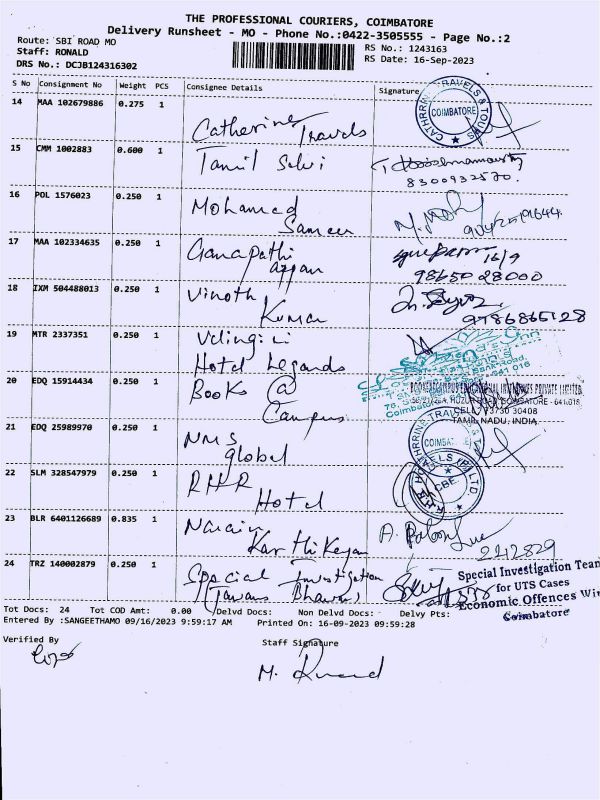 THE PROFESSIONAL COURIERS, COIMBATORE
Delivery Runsheet - MO - Phone No.:0422-3505555 - Page No.:2
Route: SBI ROAD MO
RS No.: 1243163
Staff: RONALD
RS Date: 16-Sep-2023
DRS No.: DCJB124316302
S No Consignment No Weight PCS Consignee Details Signature
14 MAA 102679886 0.275 1 Catherine Travels
COIMBATORE
15 CMM 1002883 0.600 1 Tamil Selvi
8300932570.
16 POL 1576023 0.250 1 Mohamed Sameer
17 MAA 102334635 0.250 1 Ganapathi Appan
16/9
98650 28000
18 IXM 504488013 0.250 1 Vinoth Kumar
9786865128
19 MTR 2337351 0.250 1 Hotel Legands
641 018
20 EDQ 15914434 0.250 1 Books @ Campus
COIMBATORE - 641 018
CELL: 73730 30408
TAMIL NADU, INDIA
21 EDQ 25989970 0.250 1 NMS global
22 SLM 328547979 0.250 1 RHR Hotel
CBE.
23 BLR 6401126689 0.835 1 Narain Karthikeyan
24 TRZ 140002879 0.250 1 Special Investigation
Special Investigation Team
for UTS Cases
Economic Offences Win
Coimbatore
Tot Docs: 24 Tot COD Amt: 0.00 Delvd Docs: Non Delvd Docs: Delvy Pts:
Entered By :SANGEETHAMO 09/16/2023 9:59:17 AM Printed On: 16-09-2023 09:59:28
Verified By
Staff Signature